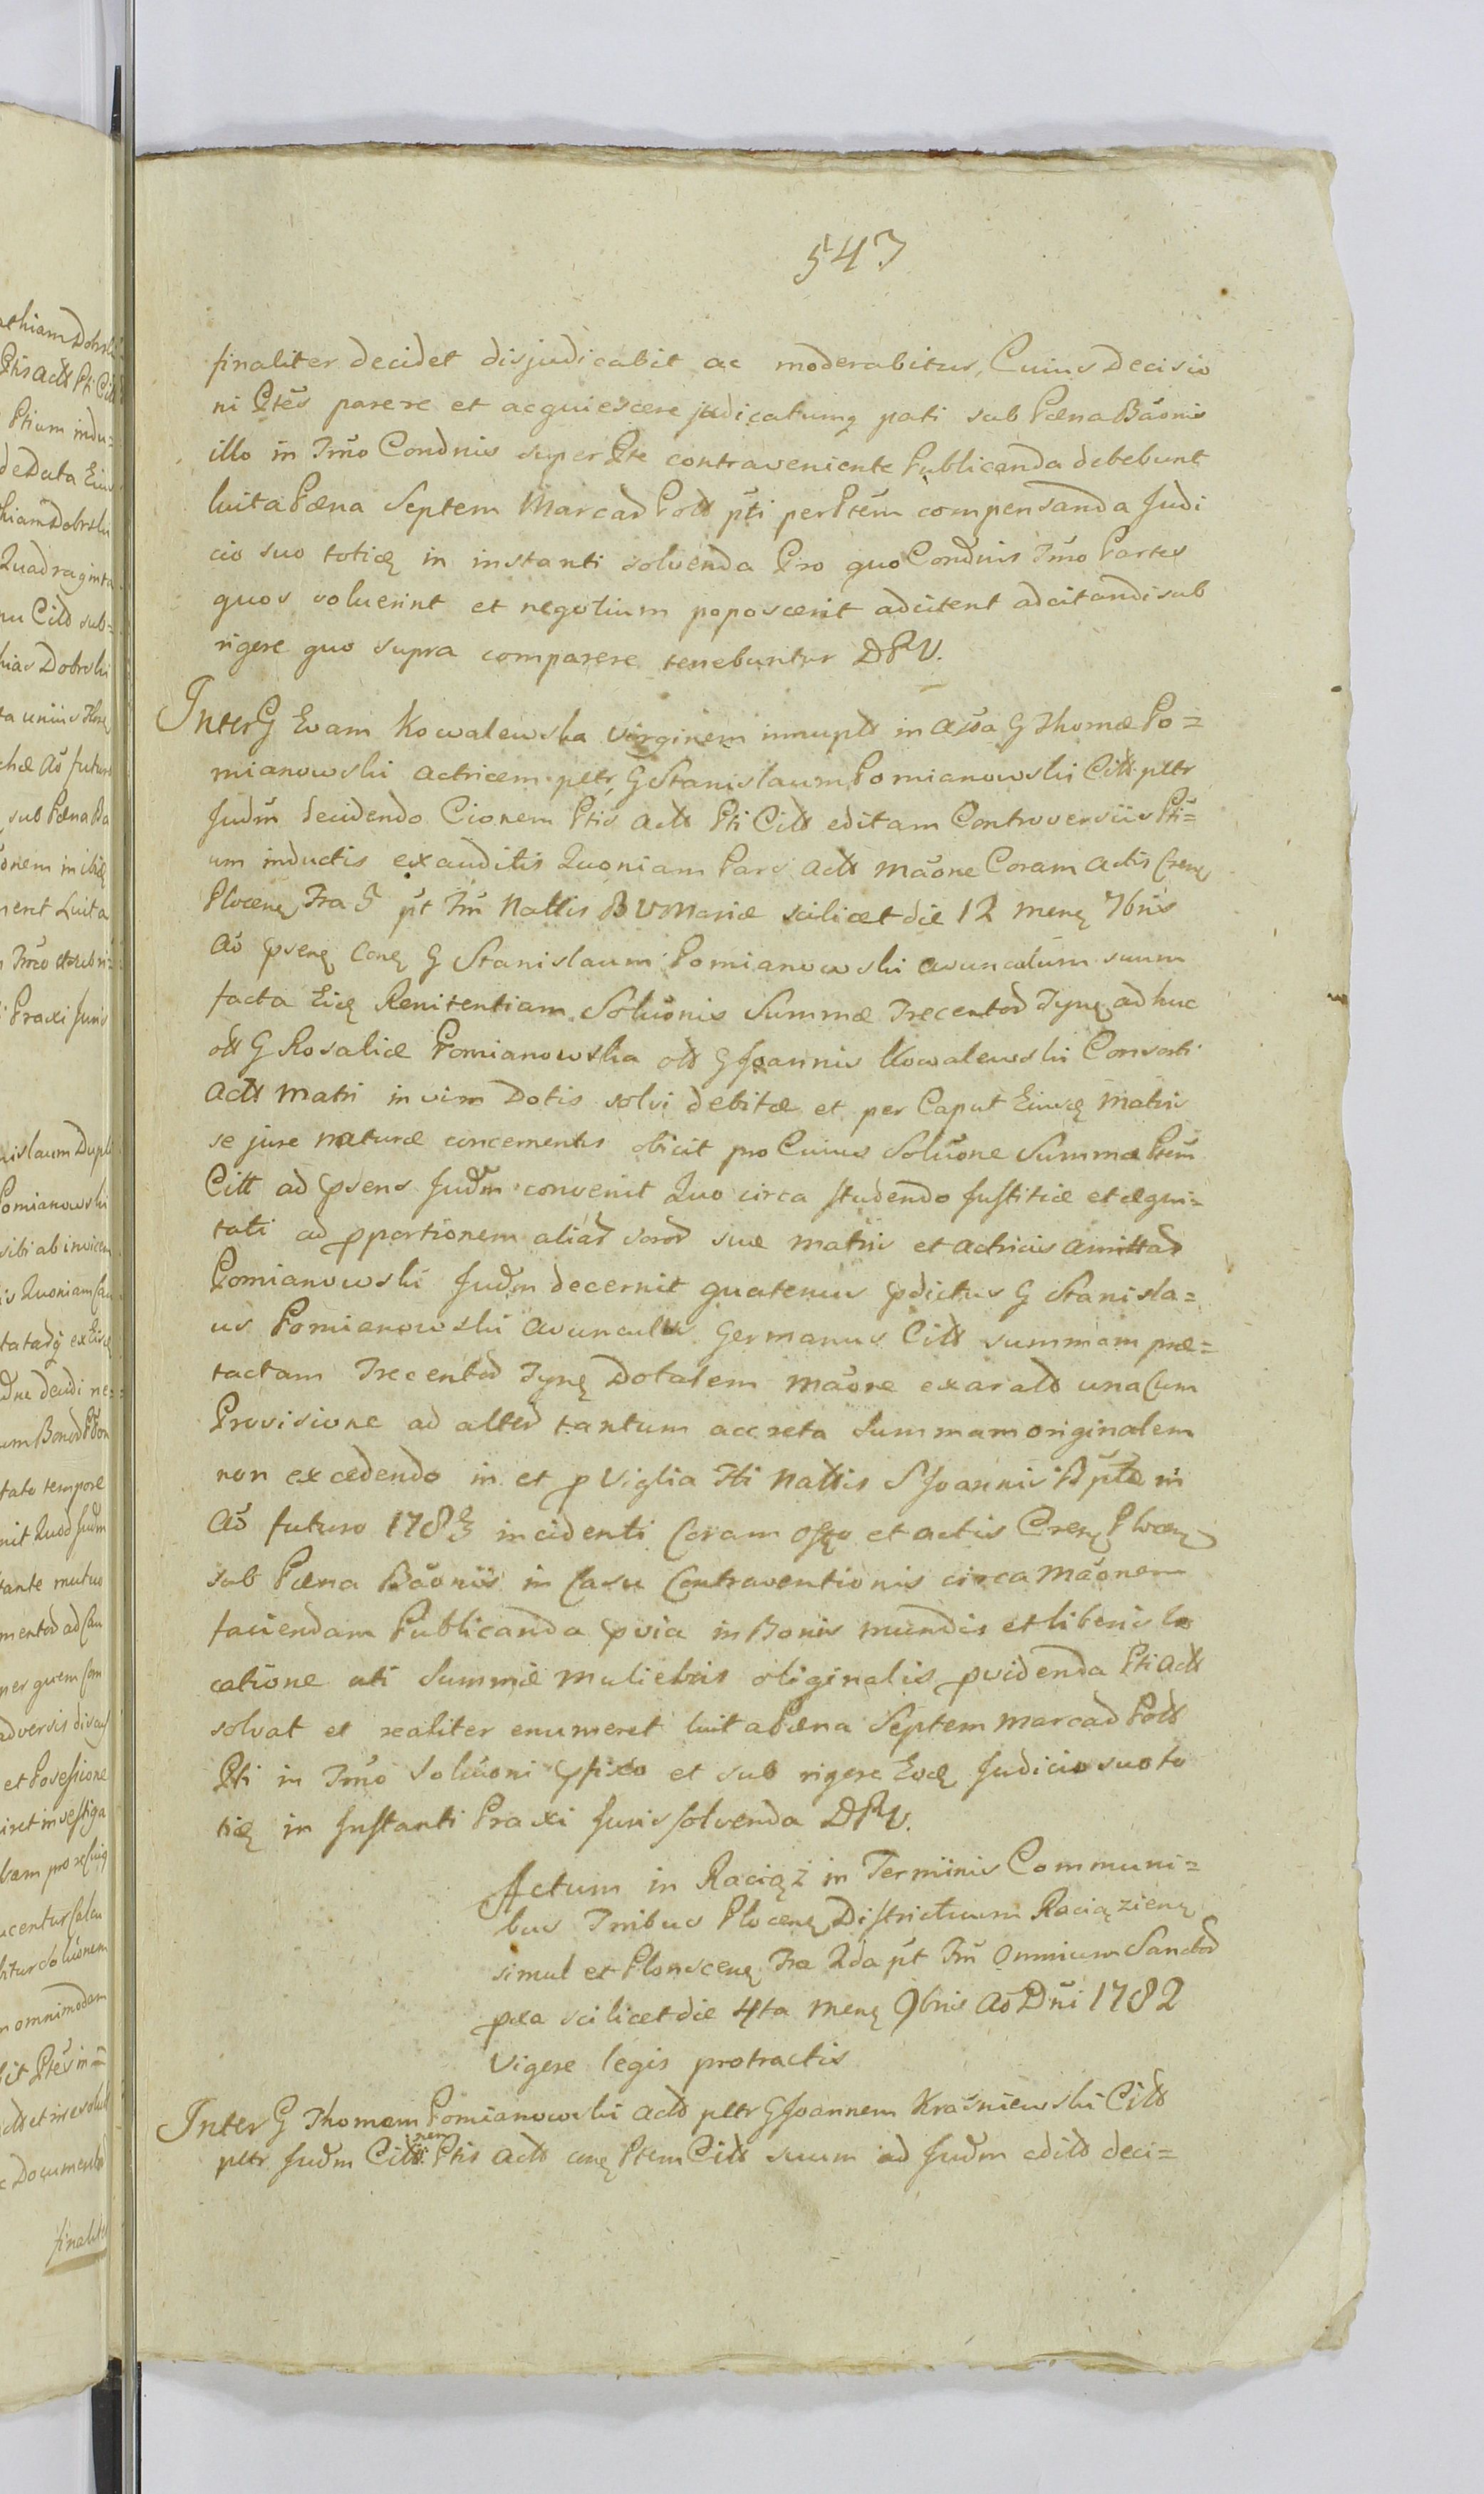 547
finaliter decidet disjudicabit ac moderabitur, Cuius Decisio
ni Ptes parere et acquiescere judicatumq pati sub Pæna Baonis
illo in Tmo Condnis super Pte contraveniente Publicanda debebunt
luita Pæna Septem Marcad Poll pti per Ptem compensanda Judi
cio suo toticę in instanti solvenda Pro quo Condnis Tmo Partes
quos voluerint et negotium poposcerit adcitent adcitandi sub
rigore quo supra comparere tenebuntur DPV.
Inter G Evam Kowalewska virginem innupld in assa G Thomæ Po=
mianowski actricem peltr, G Stanislaum Pomianowski Citt peltr
Judm decidendo Cionem Ptis actt Pti Citt editam Controversiis Pti=
um inductis exauditis Quoniam Pars actt maone Coram actis Crenę
Plocenę Fra 5 pt Fm Nattis B V Mariæ scilicet die 12 menę 7bris
ao psenę conę G Stanislaum Pomianowski avunculum suum
facta Eicę Renitentiam Soluonis Summæ Trecentod Tynę ad huc
ott G Rosaliæ Pomianowska ott G Joannis Kowalewski Consorti
actt matri in vim Dotis solvi debitæ et per Caput Eiusę Matris
se jure naturæ concernentis obicit pro Cuius Soluone Summæ Ptem
Citt ad psens Judm convenit Quo circa studendo Justitiæ et æqui=
tati ad pportionem aliad sorod suæ matris et actricis amittad
Pomianowski Judm decernit quatenus pdictus G Stanisla=
us Pomianowski avunculus Germanus Citt summam præ=
tactam Trecentod Tynę Dotalem maone exarald una Cum
Provisione ad alterd tantum accreta Summam originalem
non excedendo in et p Viglia Fti Nattis S Joannis Bptæ in
ao futuro 1783 incidenti Coram offo et actis Crenę Plocenę
sub Pæna Baonis in Casu Contraventionis circa Maonem
faciendam Publicanda pvia in Bonis mundis et liberis lo
catione uti Summæ muliebris originalis pvidenda Pti actt
solvat et realiter enumeret luita Pæna Septem marcad Poll
Pti in Tmo Soluoni pfixo et sub rigore Eocę Judicio suo to
ticę in Instanti Praxi Juris solvenda DPV.
Actum in Raciąż in Terminis Communi=
bus Tribus Plocenę Districtuum Raciązienę
simul et Plonscenę Fra 2da pt Fm Omnium Sanctod
pxa scilicet die 4ta Menę 9bris Ao Dni 1782
Vigore legis protractis
Inter G Thomam Pomianowski actt peltr G Joannem Kraśniewski Citt
peltr Judm Citt nem Ptis actt conę Ptem Citt suum ad Judm edild deci=